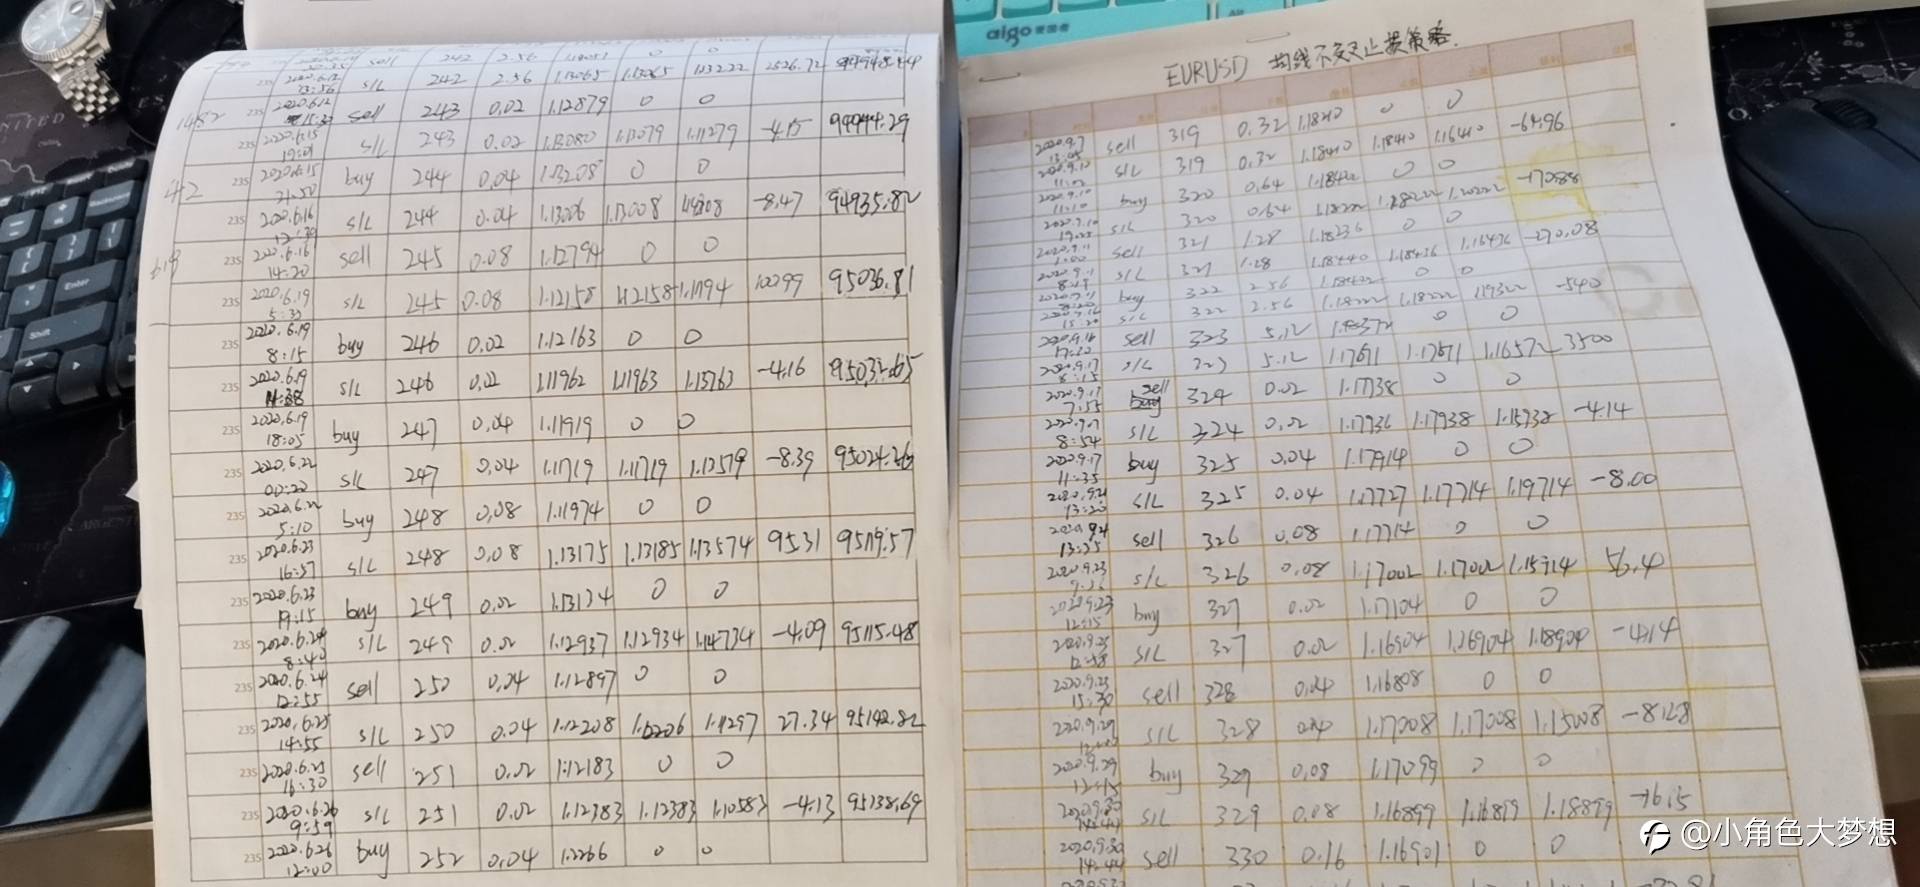 sell 242 2.56 0 0
235 s/L 242 2.56 1.13065 1.13065 1.13222
235 sell 243 0.02 1.12879 0 0
235 2020.6.15 s/L 243 0.02 1.13080 1.13079 1.11279 -4.15
235 2020.6.15 21:50 buy 244 0.04 1.13208 0 0
235 2020.6.16 s/L 244 0.04 1.13006 1.13008 -8.47 94935.82
235 2020.6.16 14:20 sell 245 0.08 1.12794 0 0
235 2020.6.19 s/L 245 0.08 1.12158 1.12158 95036.81
235 2020.6.19 8:15 buy 246 0.02 1.12163 0 0
235 2020.6.19 s/L 246 0.02 1.11962 1.11963 1.13763 -4.16 95032.65
235 2020.6.19 18:05 buy 247 0.04 1.11919 0 0
235 2020.6.22 00:20 s/L 247 0.04 1.11719 1.11719 1.13519 -8.39 95024.26
235 2020.6.22 5:10 buy 248 0.08 1.11974 0 0
235 2020.6.23 16:57 s/L 248 0.08 1.13175 1.13185 1.13574 95.31 95119.57
235 2020.6.23 19:15 buy 249 0.02 1.13134 0 0
235 2020.6.24 8:40 s/L 249 0.02 1.12937 1.12934 1.14734 -4.09 95115.48
235 2020.6.24 12:55 sell 250 0.04 1.12897 0 0
235 2020.6.25 14:55 s/L 250 0.04 1.12208 27.34 95142.82
235 2020.6.25 16:30 sell 251 0.02 1.12183 0 0
235 2020.6.26 9:59 s/L 251 0.02 1.12383 1.12383 1.10583 -4.13 95138.69
235 2020.6.26 12:00 buy 252 0.04 0 0
aigo
EURUSD 均线不交叉止损策略.
2020.9.7 sell 319 0.32 1.18210 0 0
2020.9.10 s/L 319 0.32 1.18410 1.18410 1.16410 -64.96
2020.9.10 11:10 buy 320 0.64 1.18422 0 0
2020.9.10 s/L 320 0.64 1.18222 1.18222 1.20222
2020.9.11 sell 321 1.28 1.18236 0 0
s/L 321 1.28 1.18440 1.18436 1.16436 -270.08
buy 322 2.56 1.18422 0 0
s/L 322 2.56 1.18222 1.18222 -540
2020.9.16 sell 323 5.12 0 0
2020.9.17 8:15 s/L 323 5.12 1.17671 1.17671 1.16572 3500
2020.9.17 7:55 sell 324 0.02 1.17738 0 0
8:54 s/L 324 0.02 1.17936 1.17938 1.15938 -4.14
2020.9.17 11:35 buy 325 0.04 1.17914 0 0
2020.9.21 13:20 s/L 325 0.04 1.17727 1.17714 1.19714 -8.00
13:25 sell 326 0.08 1.17714 0 0
2020.9.23 s/L 326 0.08 1.17002 1.17002 1.15714 56.4
2020.9.23 12:15 buy 327 0.02 1.17104 0 0
2020.9.23 12:58 s/L 327 0.02 1.16904 1.16904 1.18904 -4.14
2020.9.23 15:30 sell 328 0.04 1.16808 0 0
2020.9.29 s/L 328 0.04 1.17008 1.17008 1.15008 -8.28
2020.9.29 12:15 buy 329 0.08 1.17099 0 0
2020.9.30 14:44 s/L 329 0.08 1.16899 1.16899 1.18899 -16.15
2020.9.30 14:44 sell 330 0.16 1.16901 0 0
@小角色大梦想